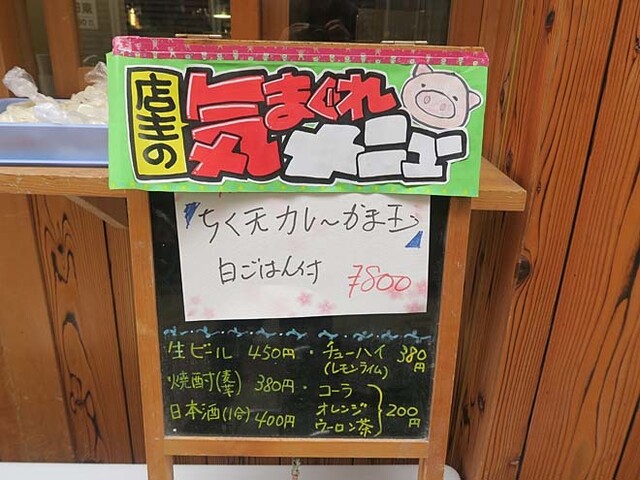 店主の
気まぐれ
メニュー
ちく天カレーかま玉
白ごはん付 ¥800
生ビール 450円・チューハイ 380円
(レモンライム)
焼酎(麦芋) 380円・コーラ
日本酒(1合) 400円 オレンジ 200円
ウーロン茶